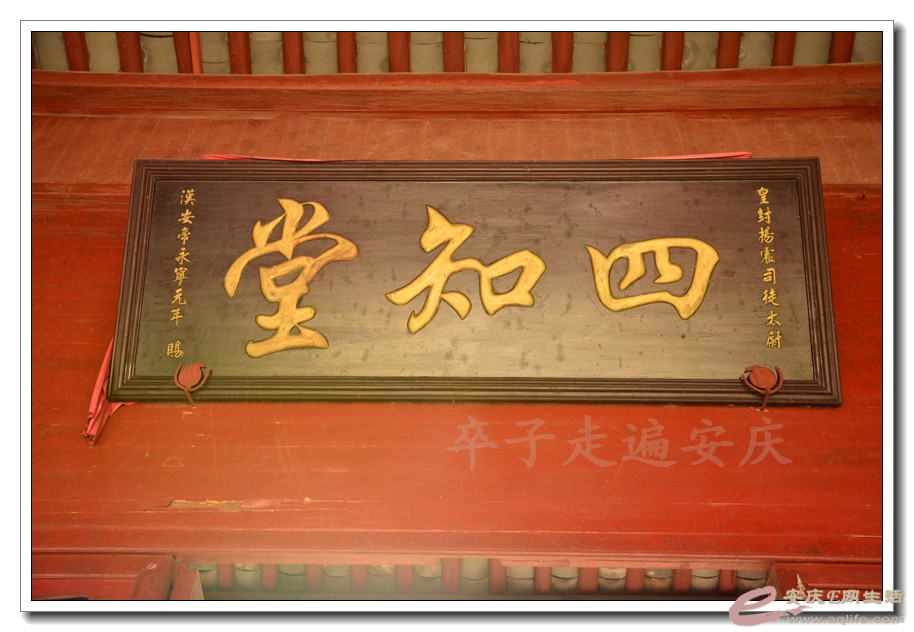 皇封楊震司徒太尉
四知堂
漢安帝永寧元年 賜
卒子走遍安庆
安庆E网生活
www.aqlife.com